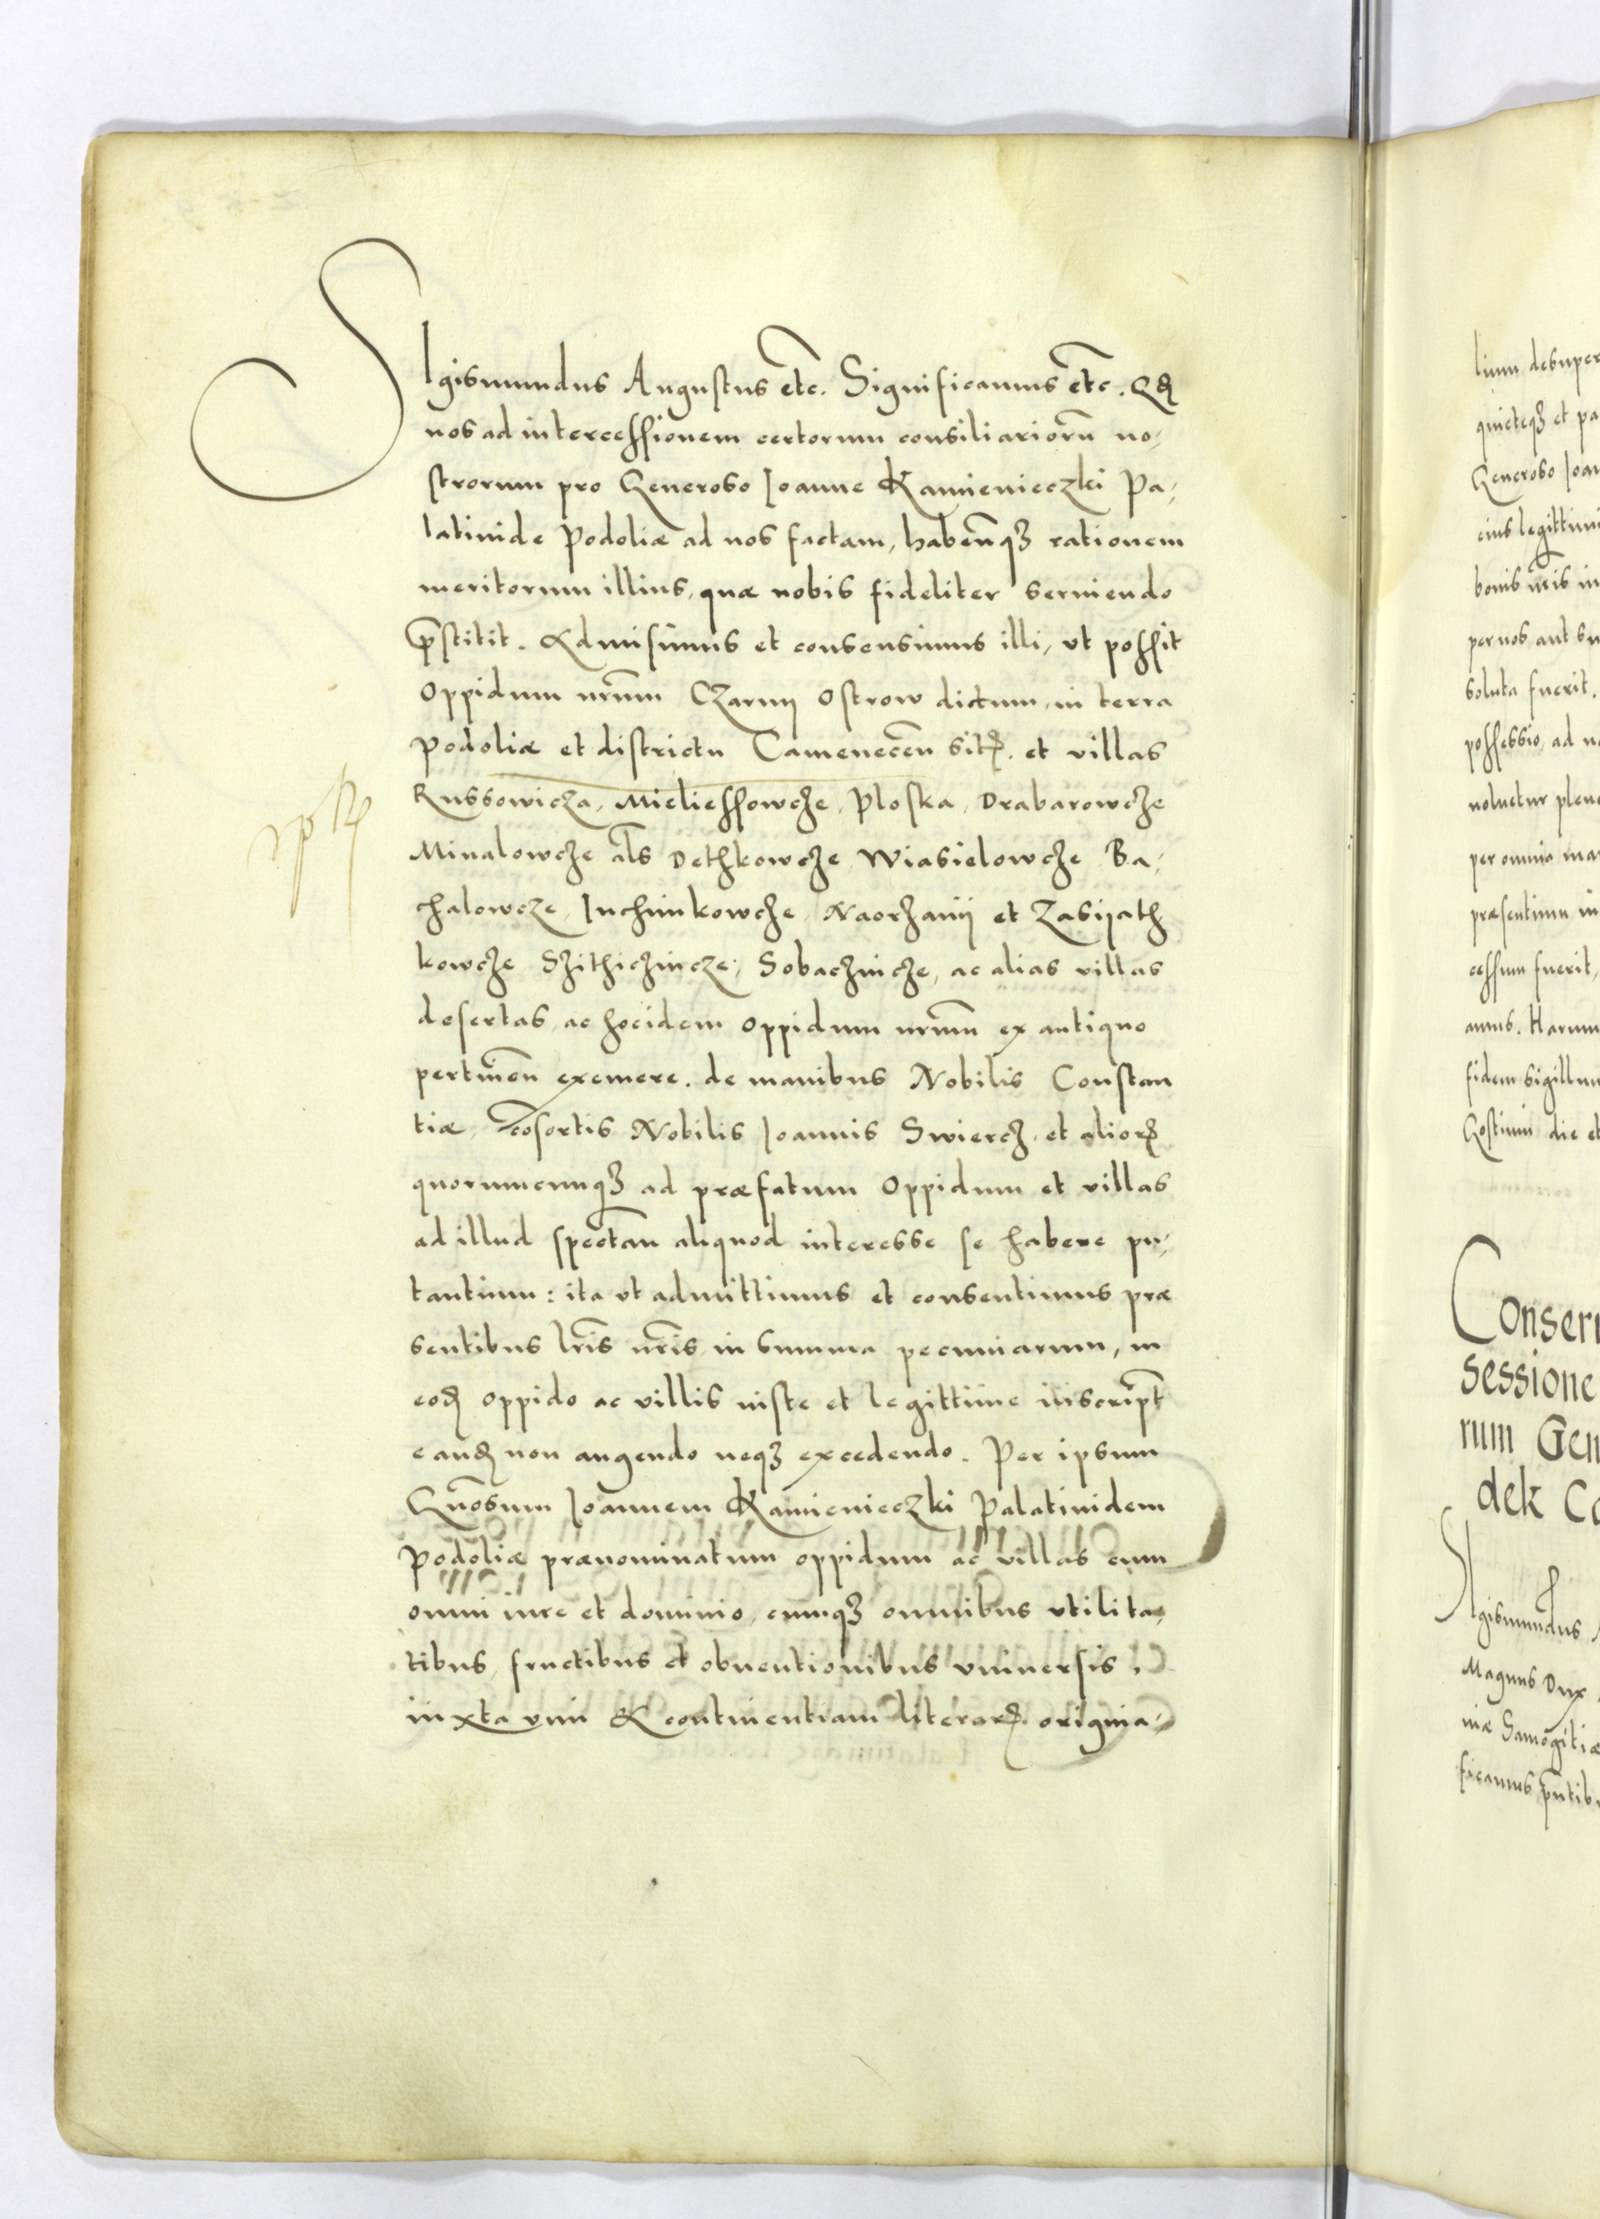 SIgismundus Augustus etc. Significamus etc. Qd
nos ad intercessionem certorum consiliarioru no-
strorum pro Generoso Joanne Kamienieczki Pa-
latinide Podoliæ ad nos factam, habentesq rationem
meritorum illius, quæ nobis fideliter serviendo
pstitit. Admisimus et consensimus illi, ut possit
Oppidum nrum Czarny Ostrow dictum, in terra
Podoliæ et districtu Camenecen sit. et villas
Russowicza, Mieliessowcze, Ploska, Drabarowcze
Minalowcze als Dethkowcze Wiasielowcze Ba-
chalowcze, Juchimkowcze, Naorzanij et Zasijath
kowcze Szithiczincze, Sobaczincze, ac alias villas
desertas, ac hocidem oppidum nrum ex antiquo
pertinen exemere. de manibus Nobilis Constan
tiæ, cosortis Nobilis Joannis Swiercz, et alior
quorumcunq ad præfatum Oppidum et villas
ad illud spectan aliquod interesse se habere pu-
tantium: ita ut admittimus et consentimus præ
sentibus lris nris in summa pecuniarum, in
eod oppido ac villis iuste et legittime inscript
eand non augendo neq excedendo. Per ipsum
Gnosum Joannem Kamienieczki Palatinidem
Podoliæ prænominatum oppidum ac villas cum
omni iure et dominio, cumq omnibus utilita-
tibus, fructibus et obventionibus universis,
iuxta vim & continentiam literar origina-
lium desuper
quieteq et pa
Generoso Joan
eius legittimi
bonis nris in
per nos aut su
soluta fuerit.
possessio, ad
voluetur plen
per omnia
præsentium in
cessum fuerit,
amus. Harum
fidem sigillum
Gostinii die et
Conser
sessione
rum Gen
dek Ca
SIgismundus
Magnus Dux
niæ Samogitiæ
ficamus pntib